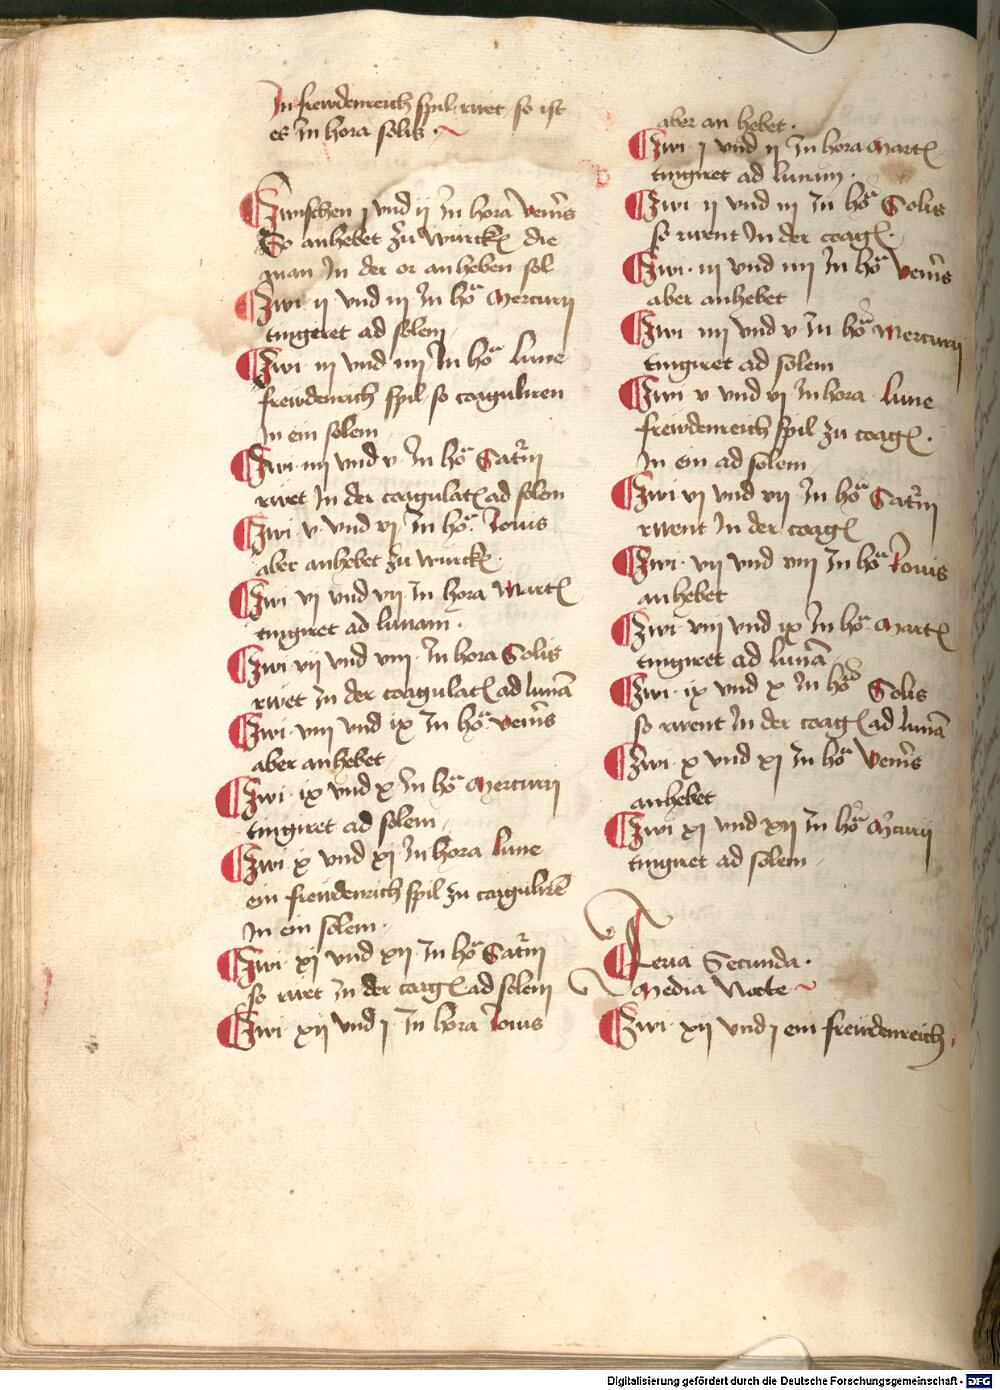 In frewdenreich spil rwet so ist
es In hora solis
Zwischen j vnd ij In hora Ven9is
So anhebet zu wurck~ die
man In der or anheben sol
Zwi ij vnd iij In hoa Mercurij
tingeret ad solem
Zwi iij vnd iiij In hoa lune
frewdenrich spil so coaguliren
In ein solem
Zwi iiij vnd v In hoa Sat'nj
rwet In der coagulat~ ad solem
Zwi v vnd vj In hoa Jouis
aber anhebet zu wurck~
Zwi vj vnd vij In hora Mart~
tingiret ad lunam
Zwi vij vnd viij In hora Solis
rwet In der coagulat~ ad lunā
Zwi viij vnd ix In hoa ven'is
aber anhebet
Zwi ix vnd x In hoa Mercurij
tingiret ad solem
Zwi x vnd xj In hora lune
ein frewdenrich spil zu coagulirē
In ein solem
Zwi xj vnd xij In hoa Sat'nj
so rwet In der coag~ ad solem
Zwi xij vnd j In hora Jouis
aber an hebet
Zwi j vnd ij In hora Mart~
tingiret ad lunam
Zwi ij vnd iij In hoa Solis
so rwent In der coag~
Zwi iij vnd iiij In hoa Ven'is
aber anhebet
Zwi iiij vnd v In hoa Mercurij
tingiret ad solem
Zwi v vnd vj In hora lune
frewdenreich spil zu coag~
In ein ad solem
Zwi vj vnd vij In hoa Sat'nj
rwent In der coag~
Zwi vij vnd viij In hoa Jouis
anhebet
Zwi viij vnd ix In hoa Mart~
tingiret ad lunā
Zwi ix vnd x In hoa Solis
so rwent In der coag~ ad lunā
Zwi x vnd xj In hoa Ven'is
anhebet
Zwi xj vnd xij In hoa M'curij
tingiret ad solem
Feria Secunda
Media Nocte
Zwi xij vnd j ein frewdenreich
Digitalisierung gefördert durch die Deutsche Forschungsgemeinschaft - DFG